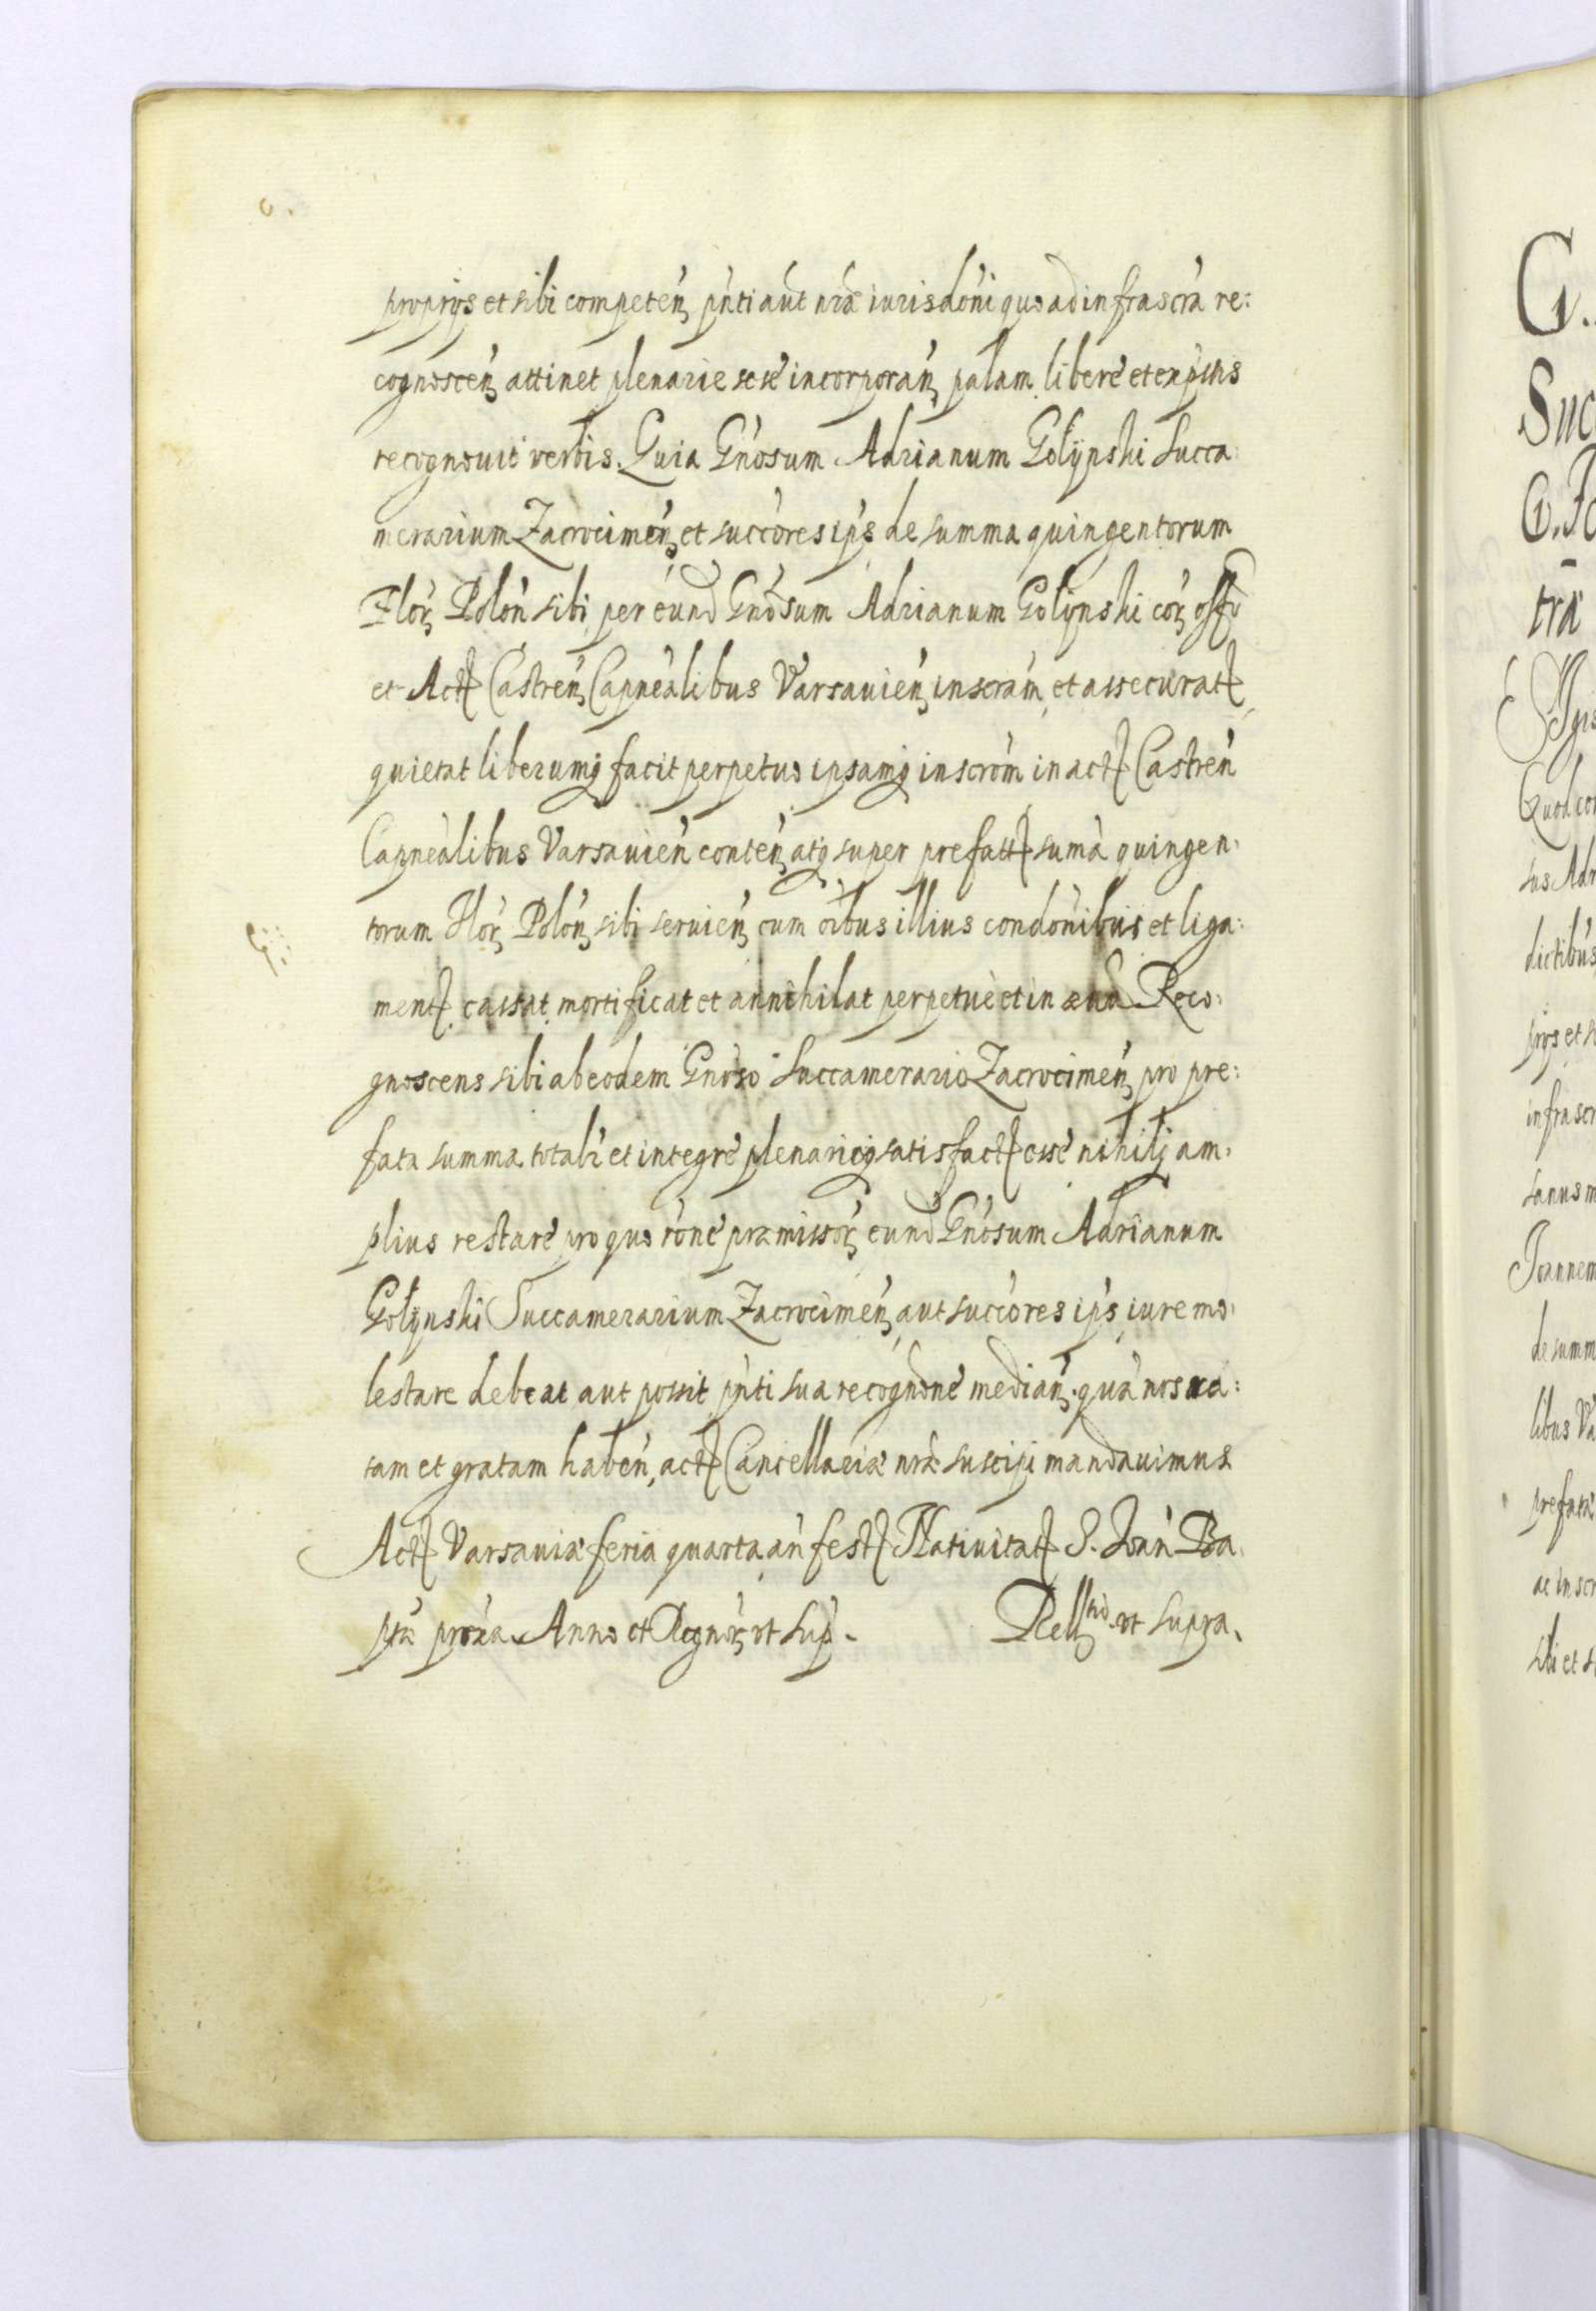 proprijs et sibi competeń pńti aut́ nrã iurisdońi quo ad infrascrã re:
cognosceń attinet plenarie sese incorporań palam libere et expssis
recognouit verbis. Quia Gńosum Adrianum Gołÿnski Succa:
merarium Zacrocimeń et succores ips de summa quingentorum
Flor Poloń sibi per eund Gńosum Adrianum Golÿnski cor offo
et Act Castreń Capnealibus Varsauień inscram et assecurat
quietat liberumq facit perpetuo ipsamq inscrom in act Castreń
Capnealibus Varsauień conteń atq super prefatt suma quingen:
torum Flor Poloń sibi seruień cum oibus illius condonibus et liga:
ment cassat mortificat et annihilat perpetue et in æuu Reco:
gnoscens sibi ab eodem Gnoso Succamerario Zacrocimeń pro pre:
fata summa totalr et integre plenarieq satisfact esse nihilq am:
plius restare pro quo rone præmissor eund Gńosum Adrianum
Gołÿnski Succamerarium Zacrocimeń aut succores ips iure mo:
lestare debeat aut possit pńti sua recognone mediań. quã nos ra:
tam et gratam habeń, act Cancellariæ nræ suscipi mandauimus
Act Varsauiæ feria quarta ań fest Natiuitat S. Joań Ba:
ptæ proxa. Anno et Regnor vt sup. Rellnō vt supra.
G.
Suc
G. Jo
tra
Quod co
sus Adr
dictibus
prijs et s
infrascr
sanus m
Joannem
de summ
libus Va
prefata
ac inscr
sibi et s